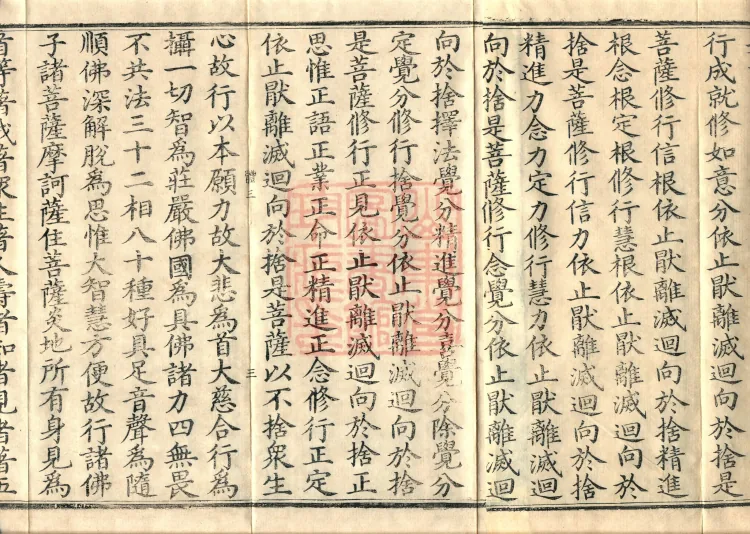 行成就修如意分依止厭離滅迴向於捨是
菩薩修行信根依止厭離滅迴向於捨精進
根念根定根修行慧根依止厭離滅迴向於
捨是菩薩修行信力依止厭離滅迴向於捨
精進力念力定力修行慧力依止厭離滅迴
向於捨是菩薩修行念覺分依止厭離滅迴
向於捨擇法覺分精進覺分喜覺分除覺分
定覺分修行捨覺分依止厭離滅迴向於捨
是菩薩修行正見依止厭離滅迴向於捨正
思惟正語正業正命正精進正念修行正定
依止厭離滅迴向於捨是菩薩以不捨衆生
三
心故行以本願力故大悲爲首大慈合行爲
攝一切智爲莊嚴佛國爲具佛諸力四無畏
不共法三十二相八十種好具足音聲爲隨
順佛深解脫爲思惟大智慧方便故行諸佛
子諸菩薩摩訶薩住菩薩炎地所有身見爲
首等著我著衆生著人壽者知者見者著五